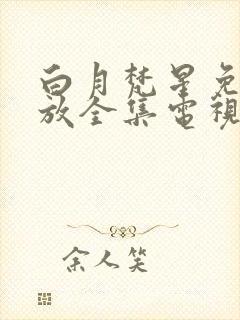 白月梵星免
放全集電視
余人笑